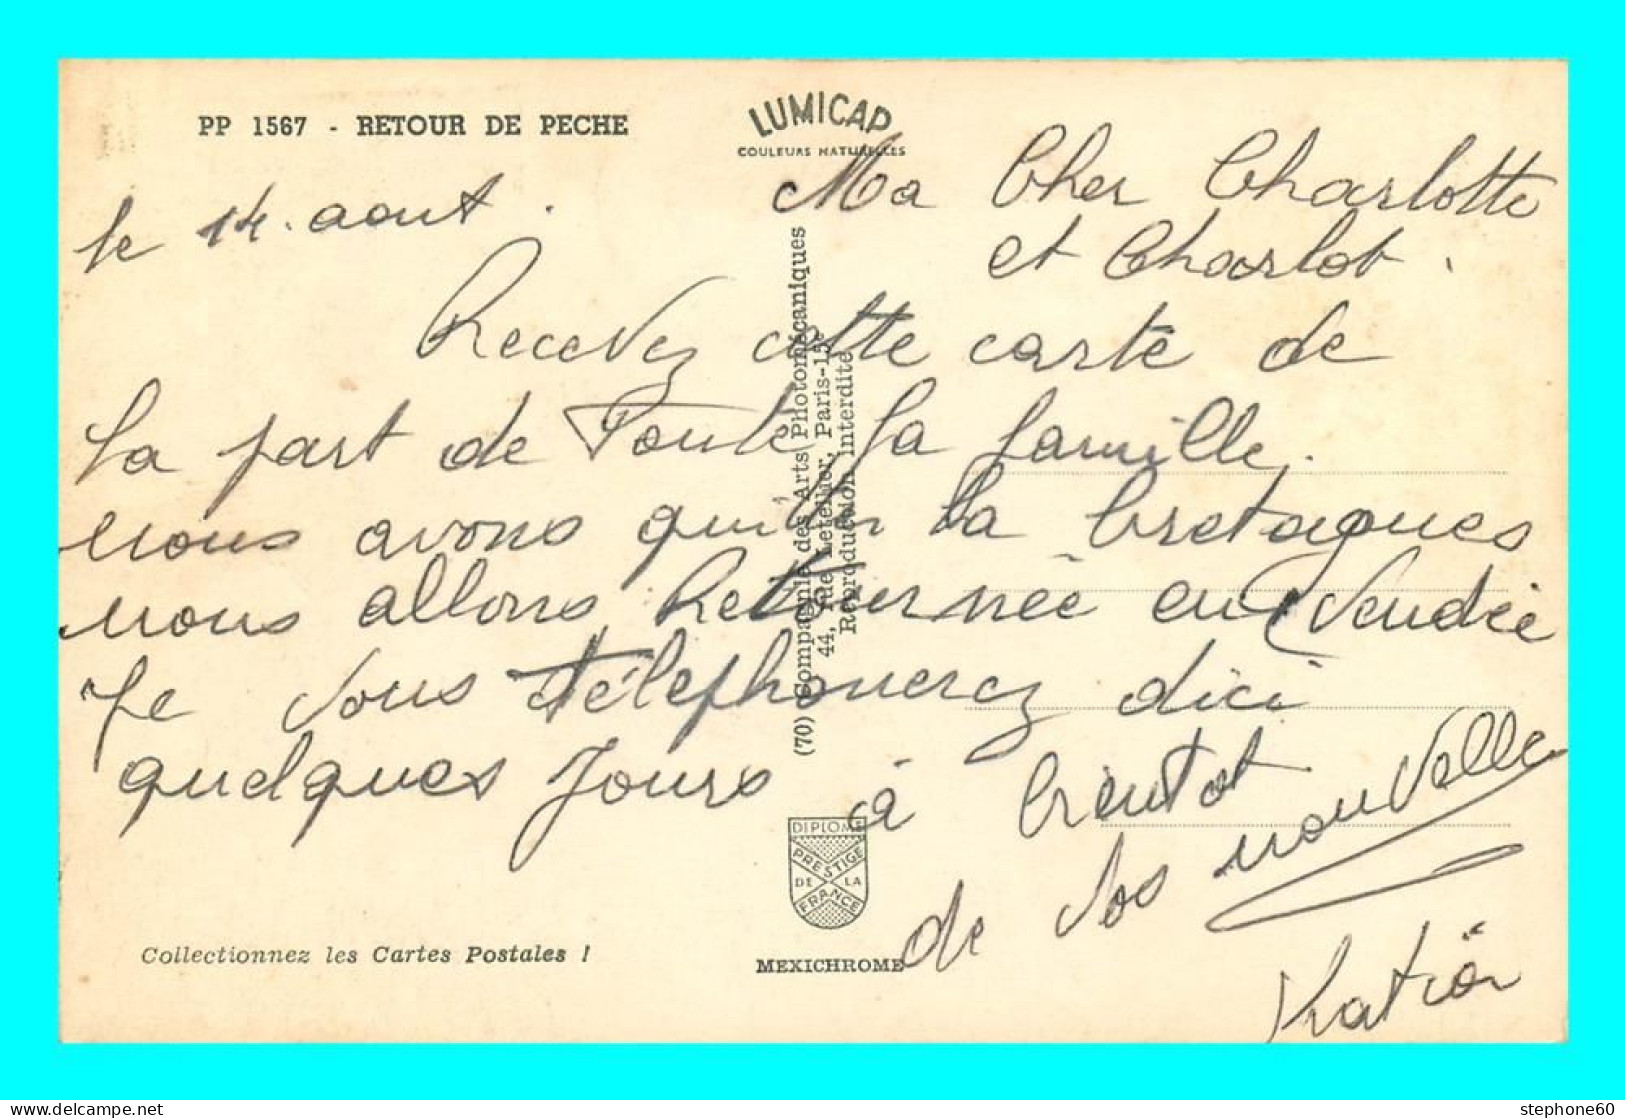 PP 1567 - RETOUR DE PECHE
LUMICAP
COULEURS NATURELLES
le 14. aout.
Ma Cher Charlotte
et Charlot.
Recevez cette carte de
la part de Toute la famille.
nous avons quitter la bretagnes
nous allons Retournée en Vendée
Je vous télephonerez dici
quelques Jours à bientot
de vos nouvelle
(70) Compagnie des Arts Photomécaniques
44, rue Letellier, Paris-15e
Reproduction interdite
DIPLOME
PRESTIGE
DE LA
FRANCE
Collectionnez les Cartes Postales !
MEXICHROME
stephone60